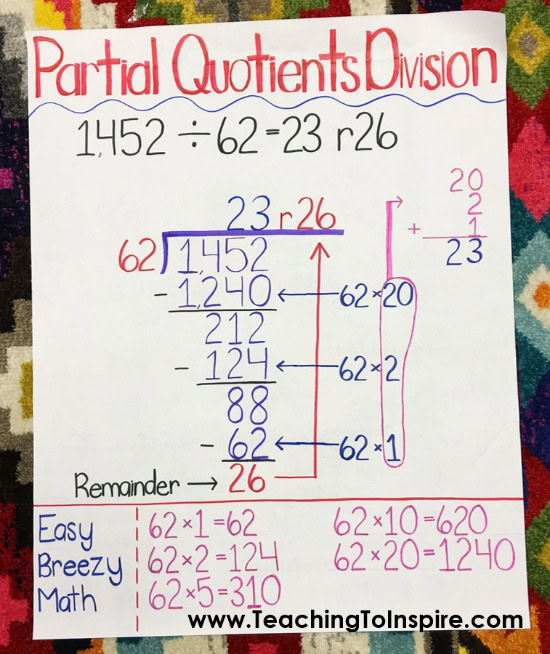 Partial Quotients Division
1,452 ÷ 62 = 23 r26
20
2
+ 1
23
23 r26
62 1,452
- 1,240 ← 62 × 20
212
- 124 ← 62 × 2
88
- 62 ← 62 × 1
Remainder → 26
Easy 62 × 1 = 62 62 × 10 = 620
Breezy 62 × 2 = 124 62 × 20 = 1240
Math 62 × 5 = 310
www.TeachingToInspire.com